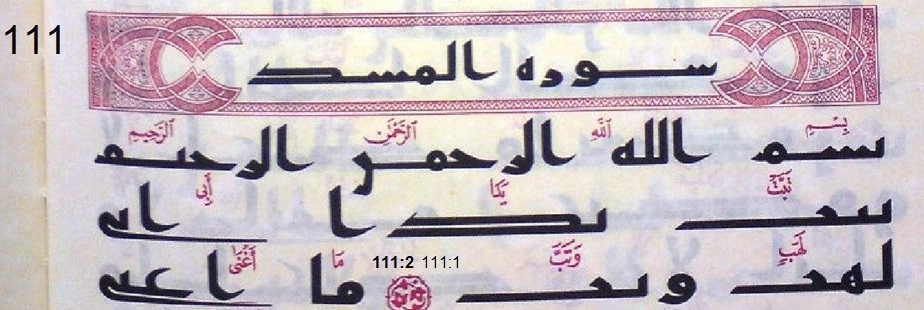 111
سوره المسد
بِسْمِ اللَّهِ الرَّحْمٰنِ الرَّحِيمِ
بسم الله الرحمن الرحيم
تَبَّتْ يَدَا أَبِي
تبت يدا ابى
لَهَبٍ وَتَبَّ 111:1 111:2 مَا أَغْنَى
لهب وتب ما اغنى